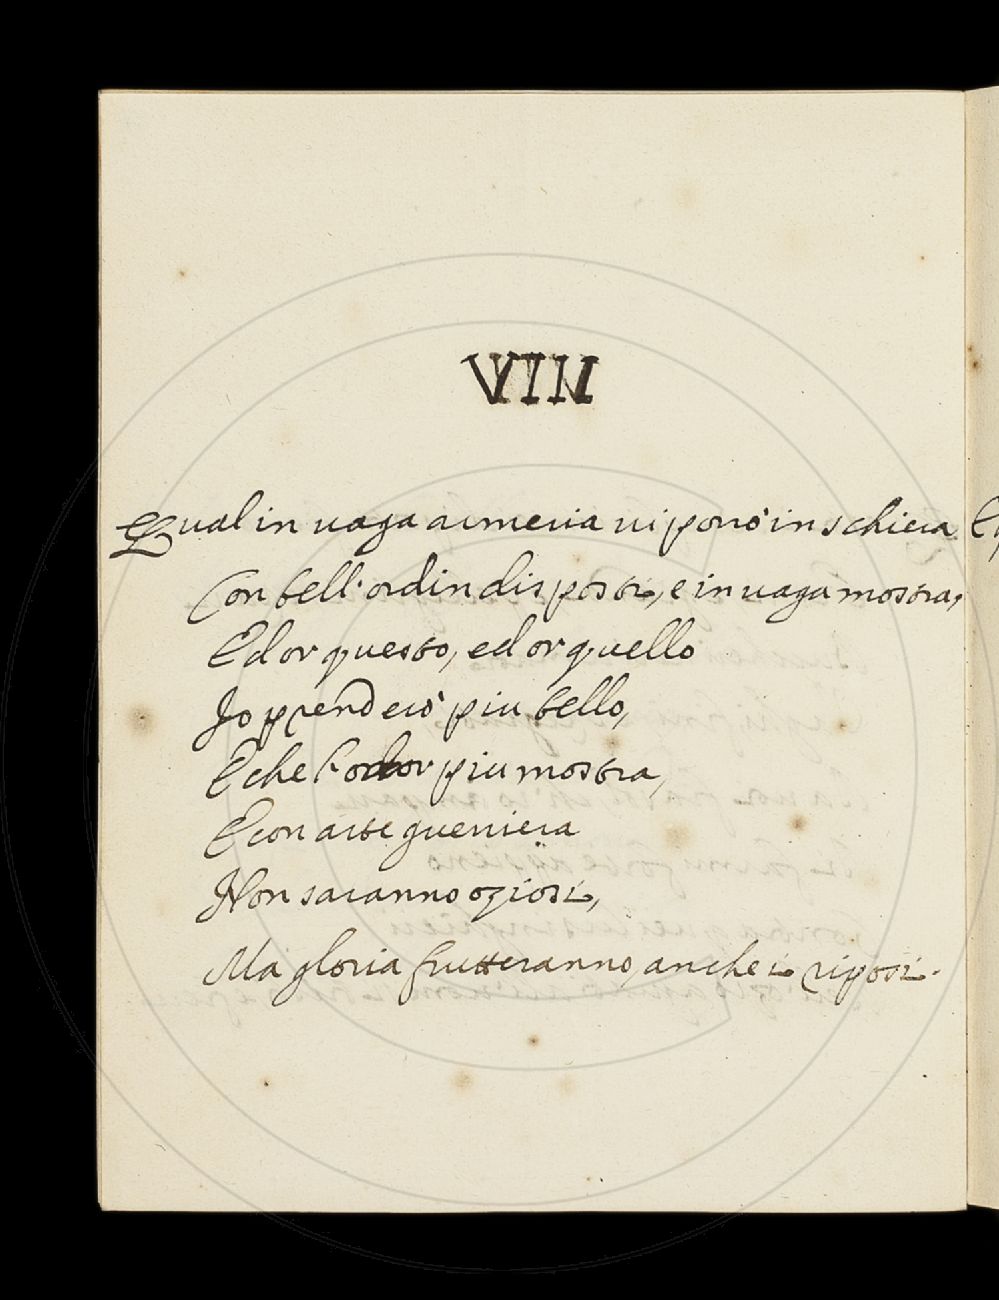 VIII
Qual in uaga armeria ui porrò in schiera
Con bell'ordin disposti, e in uaga mostra,
Ed or questo, ed or quello
Io prenderò piu bello,
E che l'or piu mostra,
E con arte guerriera
Non saranno oziosi,
Ma gloria frutteranno, anche i riposi.